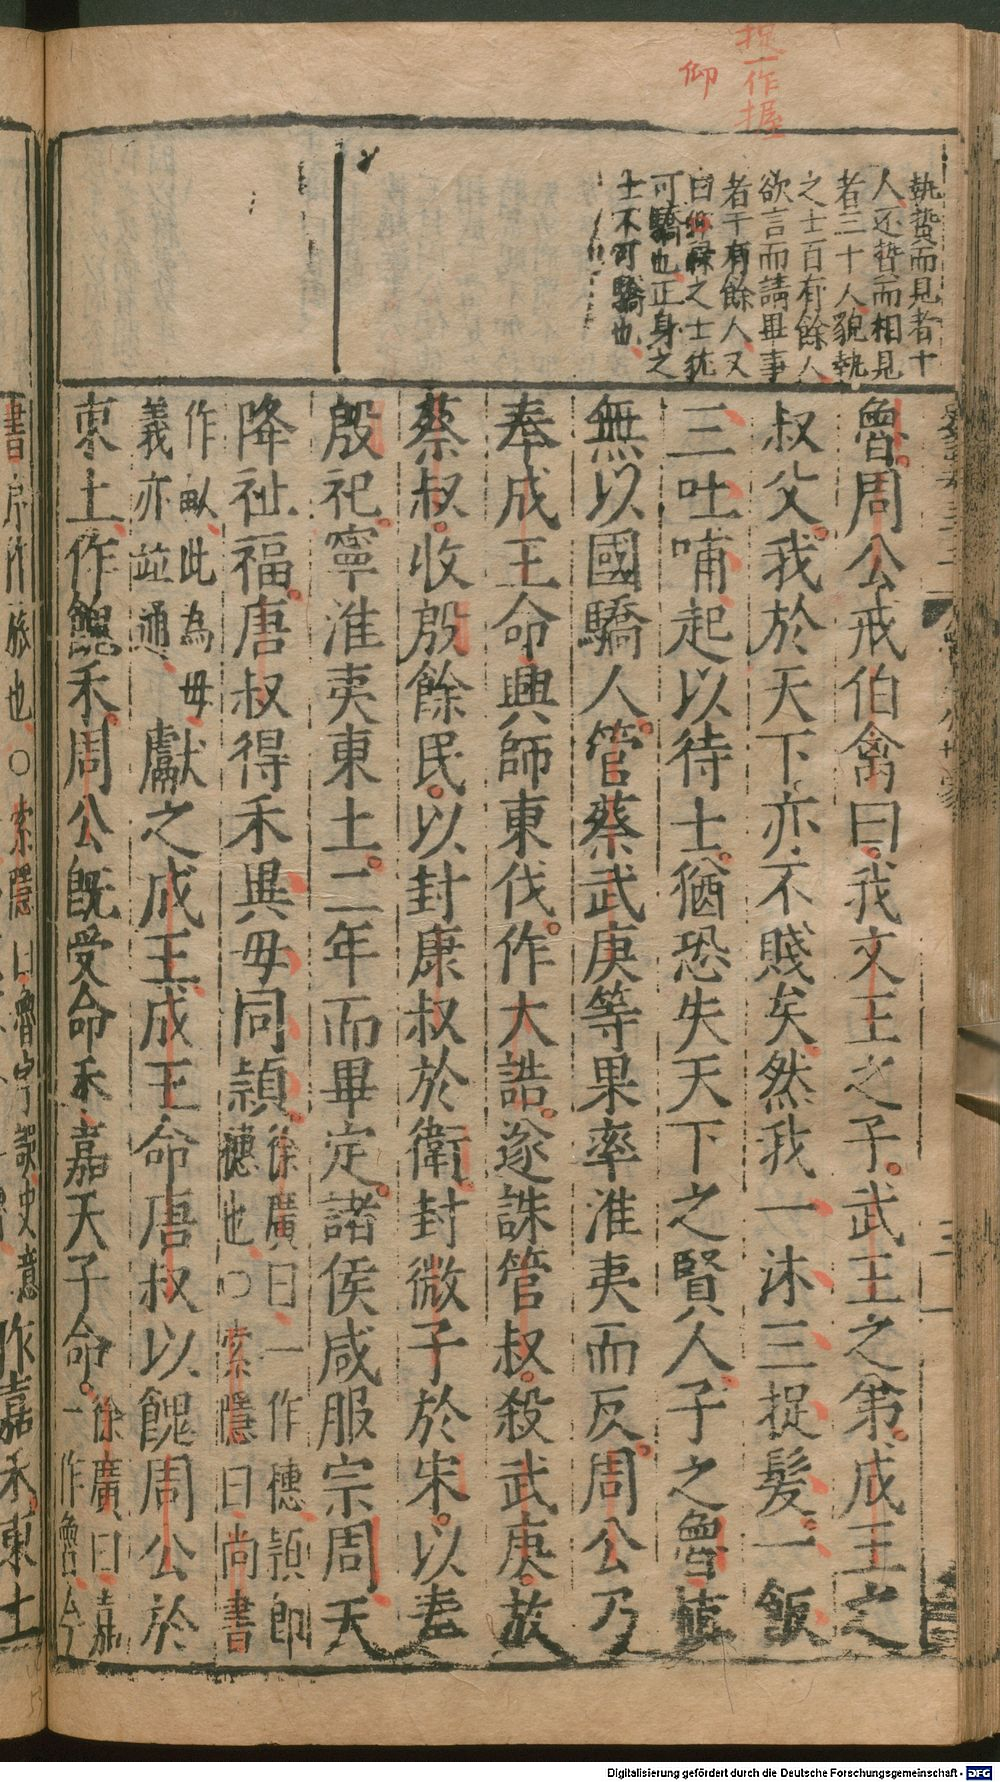 捉一作握
仰
執贄而見者十
人还贄而相見
者三十人貌執
之士百有餘人
欲言而請畢事
者千有餘人又
曰 祿之士 
可驕也正身之
士不可驕也
魯周公戒伯禽曰我文王之子武王之弟成王之
叔父我於天下亦不賤矣然我一沐三捉髮一飯
三吐哺起以待士猶恐失天下之賢人子之魯慎
無以國驕人管蔡武庚等果率淮夷而反周公乃
奉成王命興師東伐作大誥遂誅管叔殺武庚放
蔡叔收殷餘民以封康叔於衛封微子於宋以奉
殷祀寧淮夷東土二年而畢定諸侯咸服宗周天
降祉福唐叔得禾異母同頴徐廣曰一作穗頴即
穗也○索隱曰尚書
作畝此為母
義亦並通獻之成王成王命唐叔以餽周公於
東土作餽禾周公既受命禾嘉天子命徐廣曰嘉
一作魯今
書序作旅也○索隱曰魯字誤史意作嘉禾東土
Digitalisierung gefördert durch die Deutsche Forschungsgemeinschaft - DFG